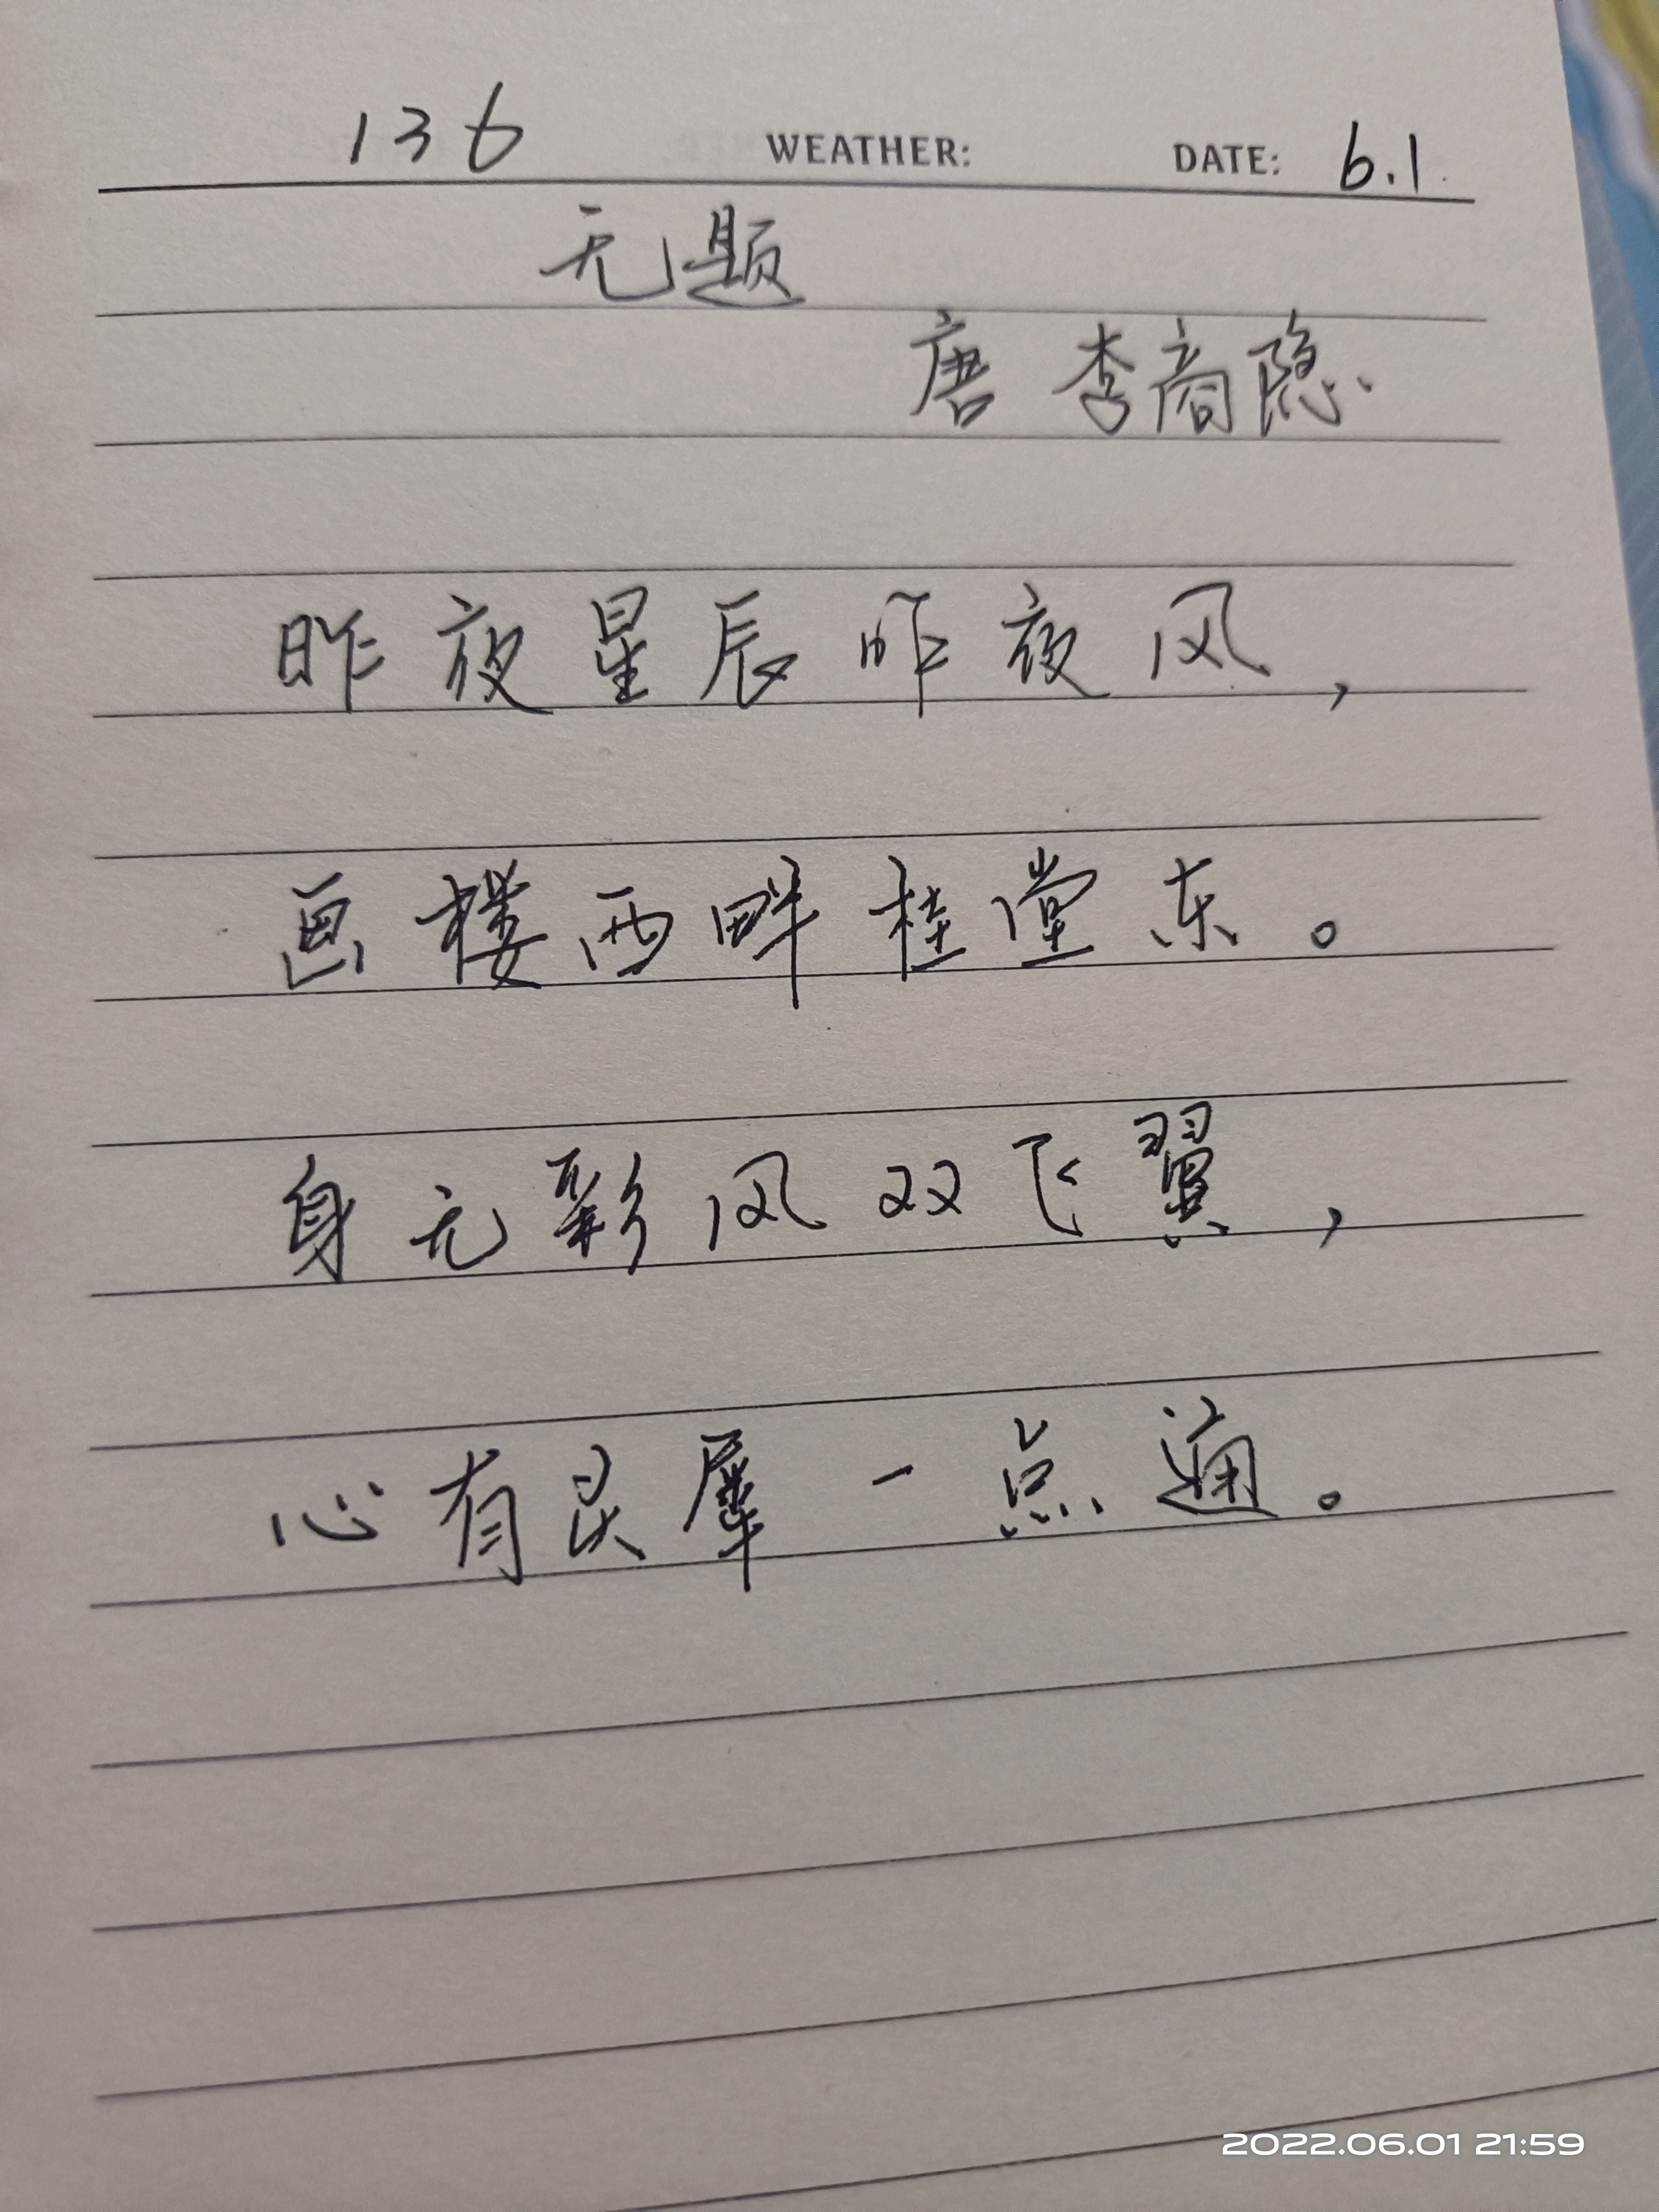 136 WEATHER: DATE: 6.1
无题
唐 李商隐
昨夜星辰昨夜风，
画楼西畔桂堂东。
身无彩凤双飞翼，
心有灵犀一点通。
2022.06.01 21:59